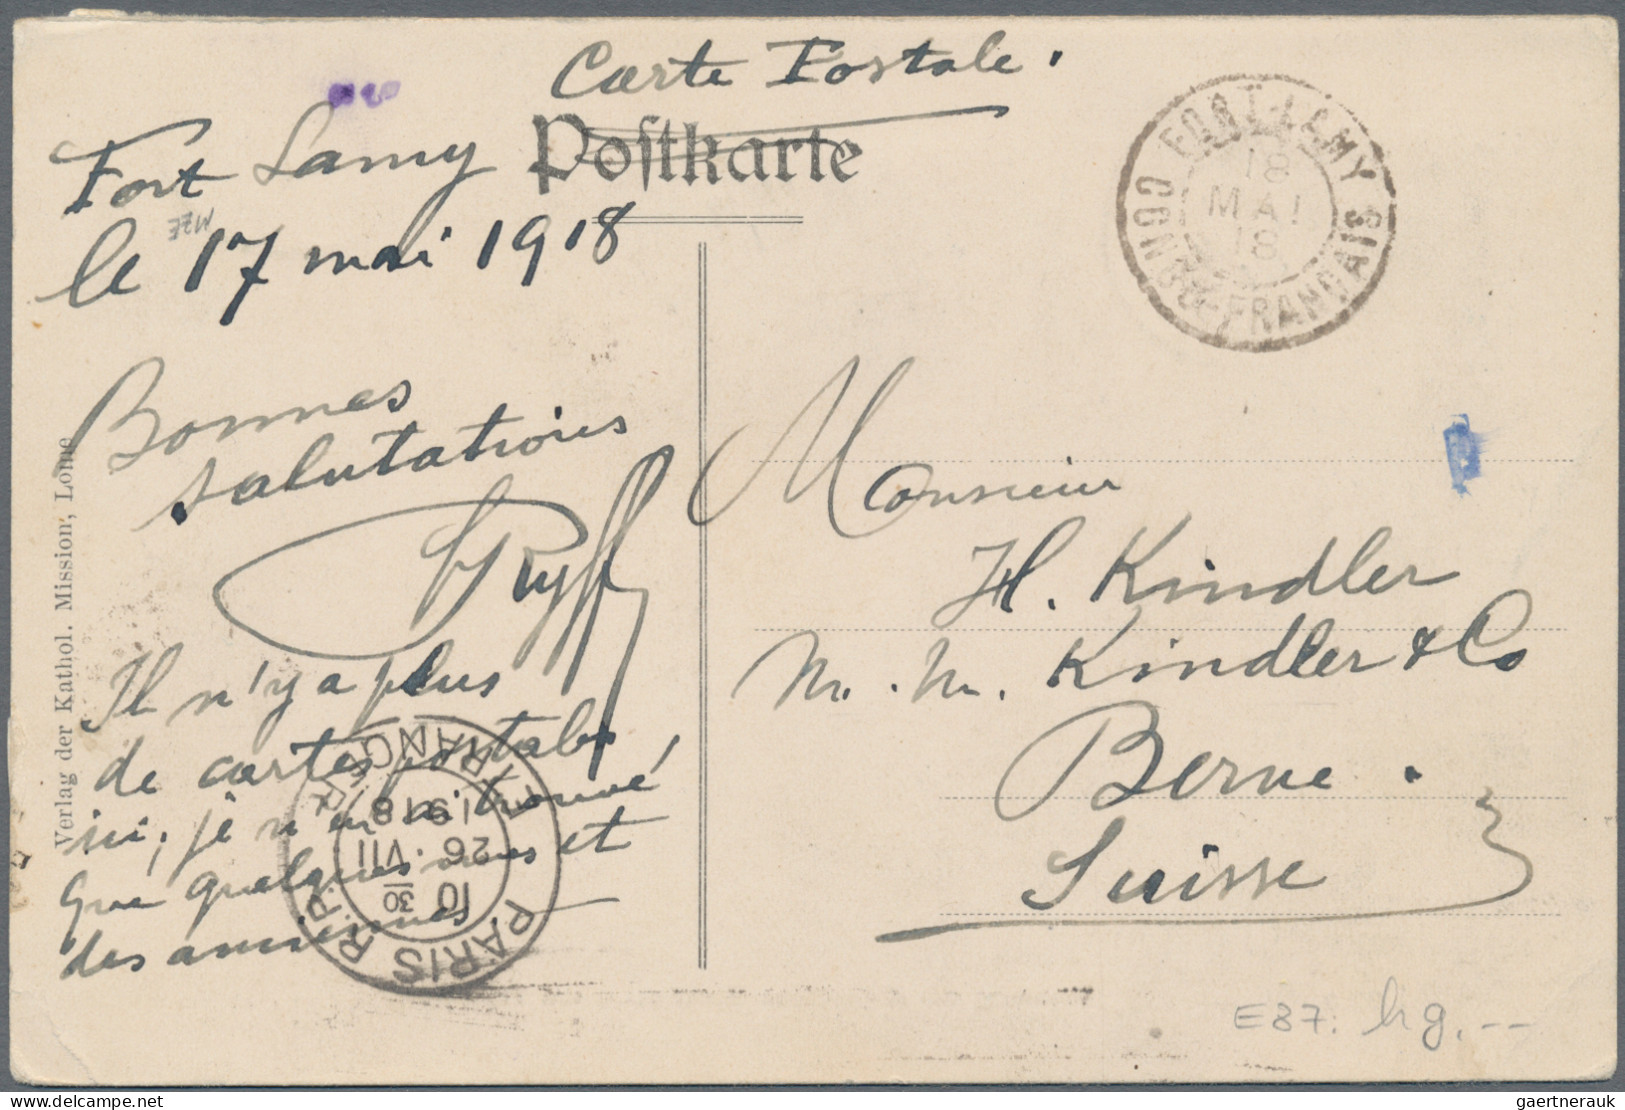 Carte Postale.
Postkarte
Fort Lamy
le 17 mai 1918
FORT-LAMY
18
MAI
18
CONGO-FRANCAIS
Bonnes
salutations
Il n'y a plus
de cartes postales
ici, je n'en ai trouvé
que quelques unes et
des anciennes
Monsieur
H. Kindler
M. M. Kindler & Co
Berne.
Suisse
PARIS R.P.
10 30
26 VII
1918
ETRANGER
Verlag der Kathol. Mission, Lome
E87. hg. --
gaertnerauk